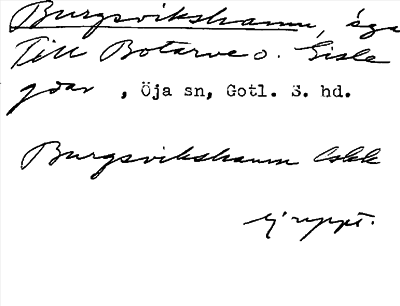 Burgsvikshamn, äga
Till Botarve o. Gisle
gdar, Öja sn, Gotl. S. hd.
Burgsvikshamn
ej uppt.